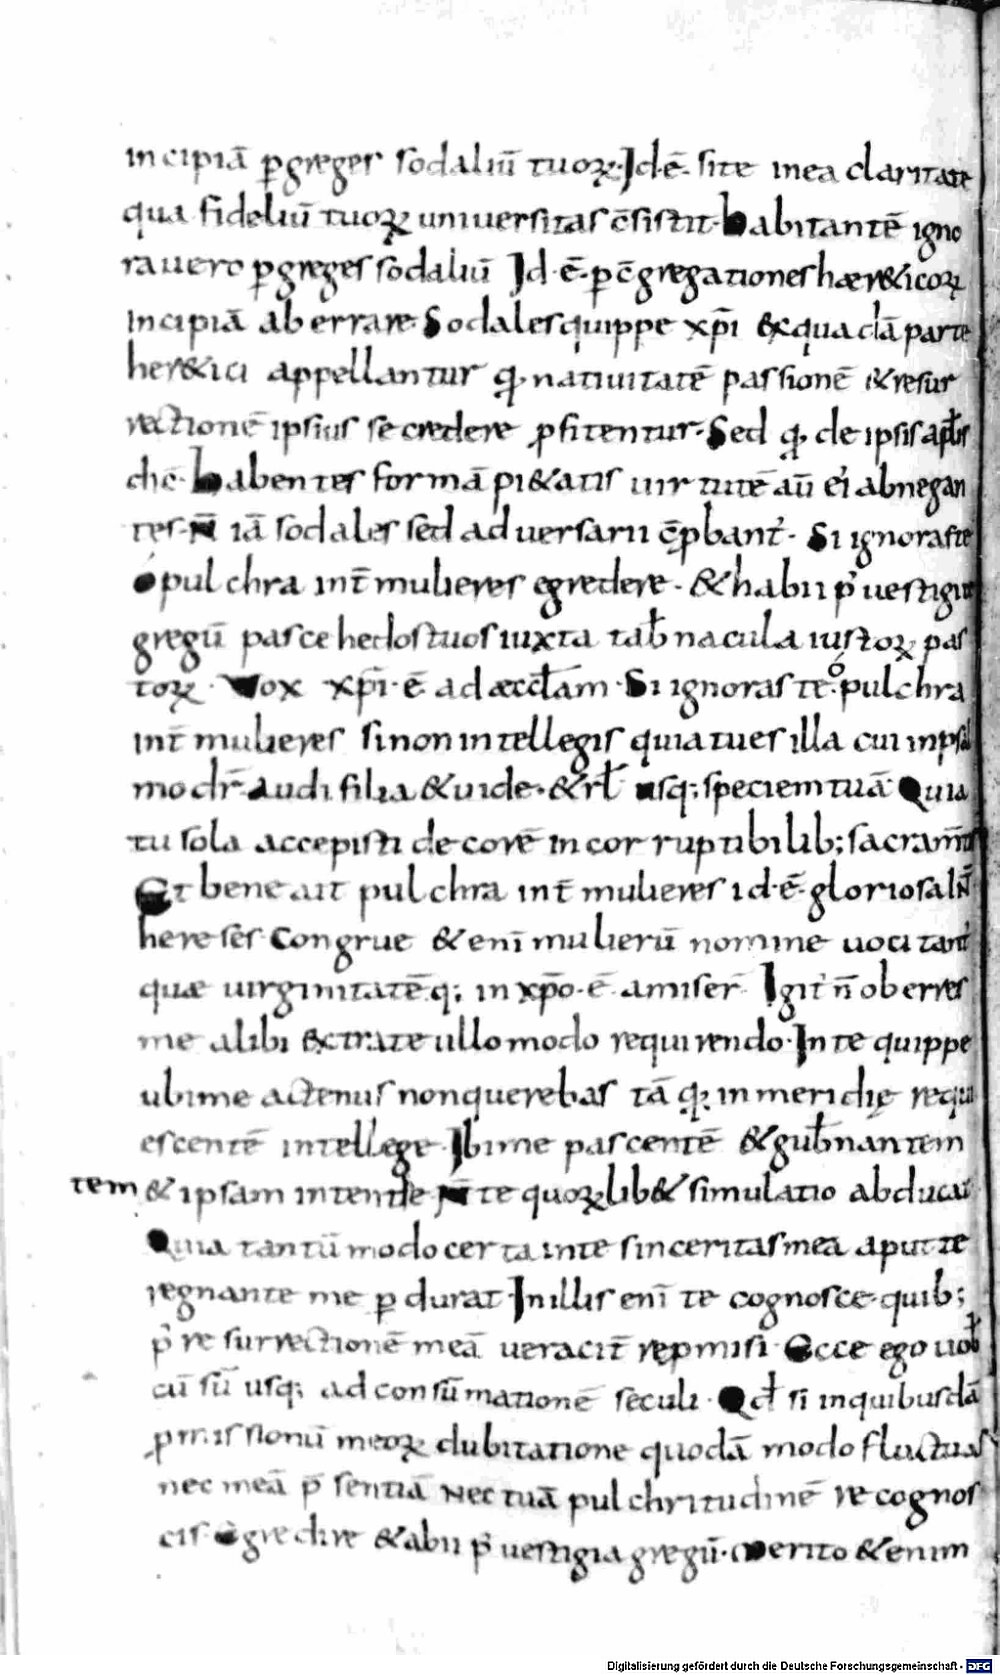 incipiā ꝑ greges sodaliū tuoꝝ. Id ē site mea claritate
qua fideliū tuoꝝ uniuersitas c̄sistit. habitantē igno
ra uero ꝑ greges sodaliū Id ē ꝑ c̄gregationes hær&icoꝝ
Incipiā ab errare. Sodales quippe xp̄i &xquadā parte
her&ici appellantur qꝫ natiuitatē passionē & resur
rectionē ipsius se credere ꝓfitentur. Sed qꝫ de ipsis apłs
dic̄. habentes formā pi&atis uirtutē aū ei' abnegan
tes. N̄ iā sodales sed aduersarii c̄ꝓbant'. Si ignoras te
ó pulchra int̄ mulieres egredere. & habii p' uestigia
gregū pasce hedos tuos iuxta tab̄nacula iustoꝝ pas
toꝝ. Vox xp̄i ē ad æccłam. Si ignoras te. ó pulchra
int̄ mulieres si non intellegis quia tu es illa cui in psal
mo dr̄. Audi filia & uide. & rł usqꝫ speciem tuā. Quia
tu sola accepisti de core in corruptibilibꝫ sacram̄
Et bene ait pulchra int̄ mulieres id. ē. gloriosa int̄
hereses. Congrue &enī mulierū nomine uocitant'
quæ uirginitatē. qꝫ in xp̄o. ē. amiser̄ Igit' n̄ oberres
me alibi &xtra te ullo modo requirendo. In te quippe
ubi me actenus non querebas tā qꝫ in meridię requi
escentē intellege. Ibi me pascentē & gub̄nantem
tem & ipsam intende. N̄ te quoꝝlib& simulatio abducat
Quia tantū modo certa in te sinceritas mea aput te
regnante me ꝑdurat. In illis enī te cognosce. quibꝫ
p' resurrectionē meā ueracit̄ reꝓmisi. Ecce ego uob
cū sū usqꝫ ad consūmationē seculi. Qđ si in quibusdā
ꝓmissionū meoꝝ dubitatione quodā modo fluctuas
nec meā p̄sentiā Nec tuā pulchritudinē recognos
cis. Egredire & abii p' uestigia gregū. Merito &enim
Digitalisierung gefördert durch die Deutsche Forschungsgemeinschaft - DFG